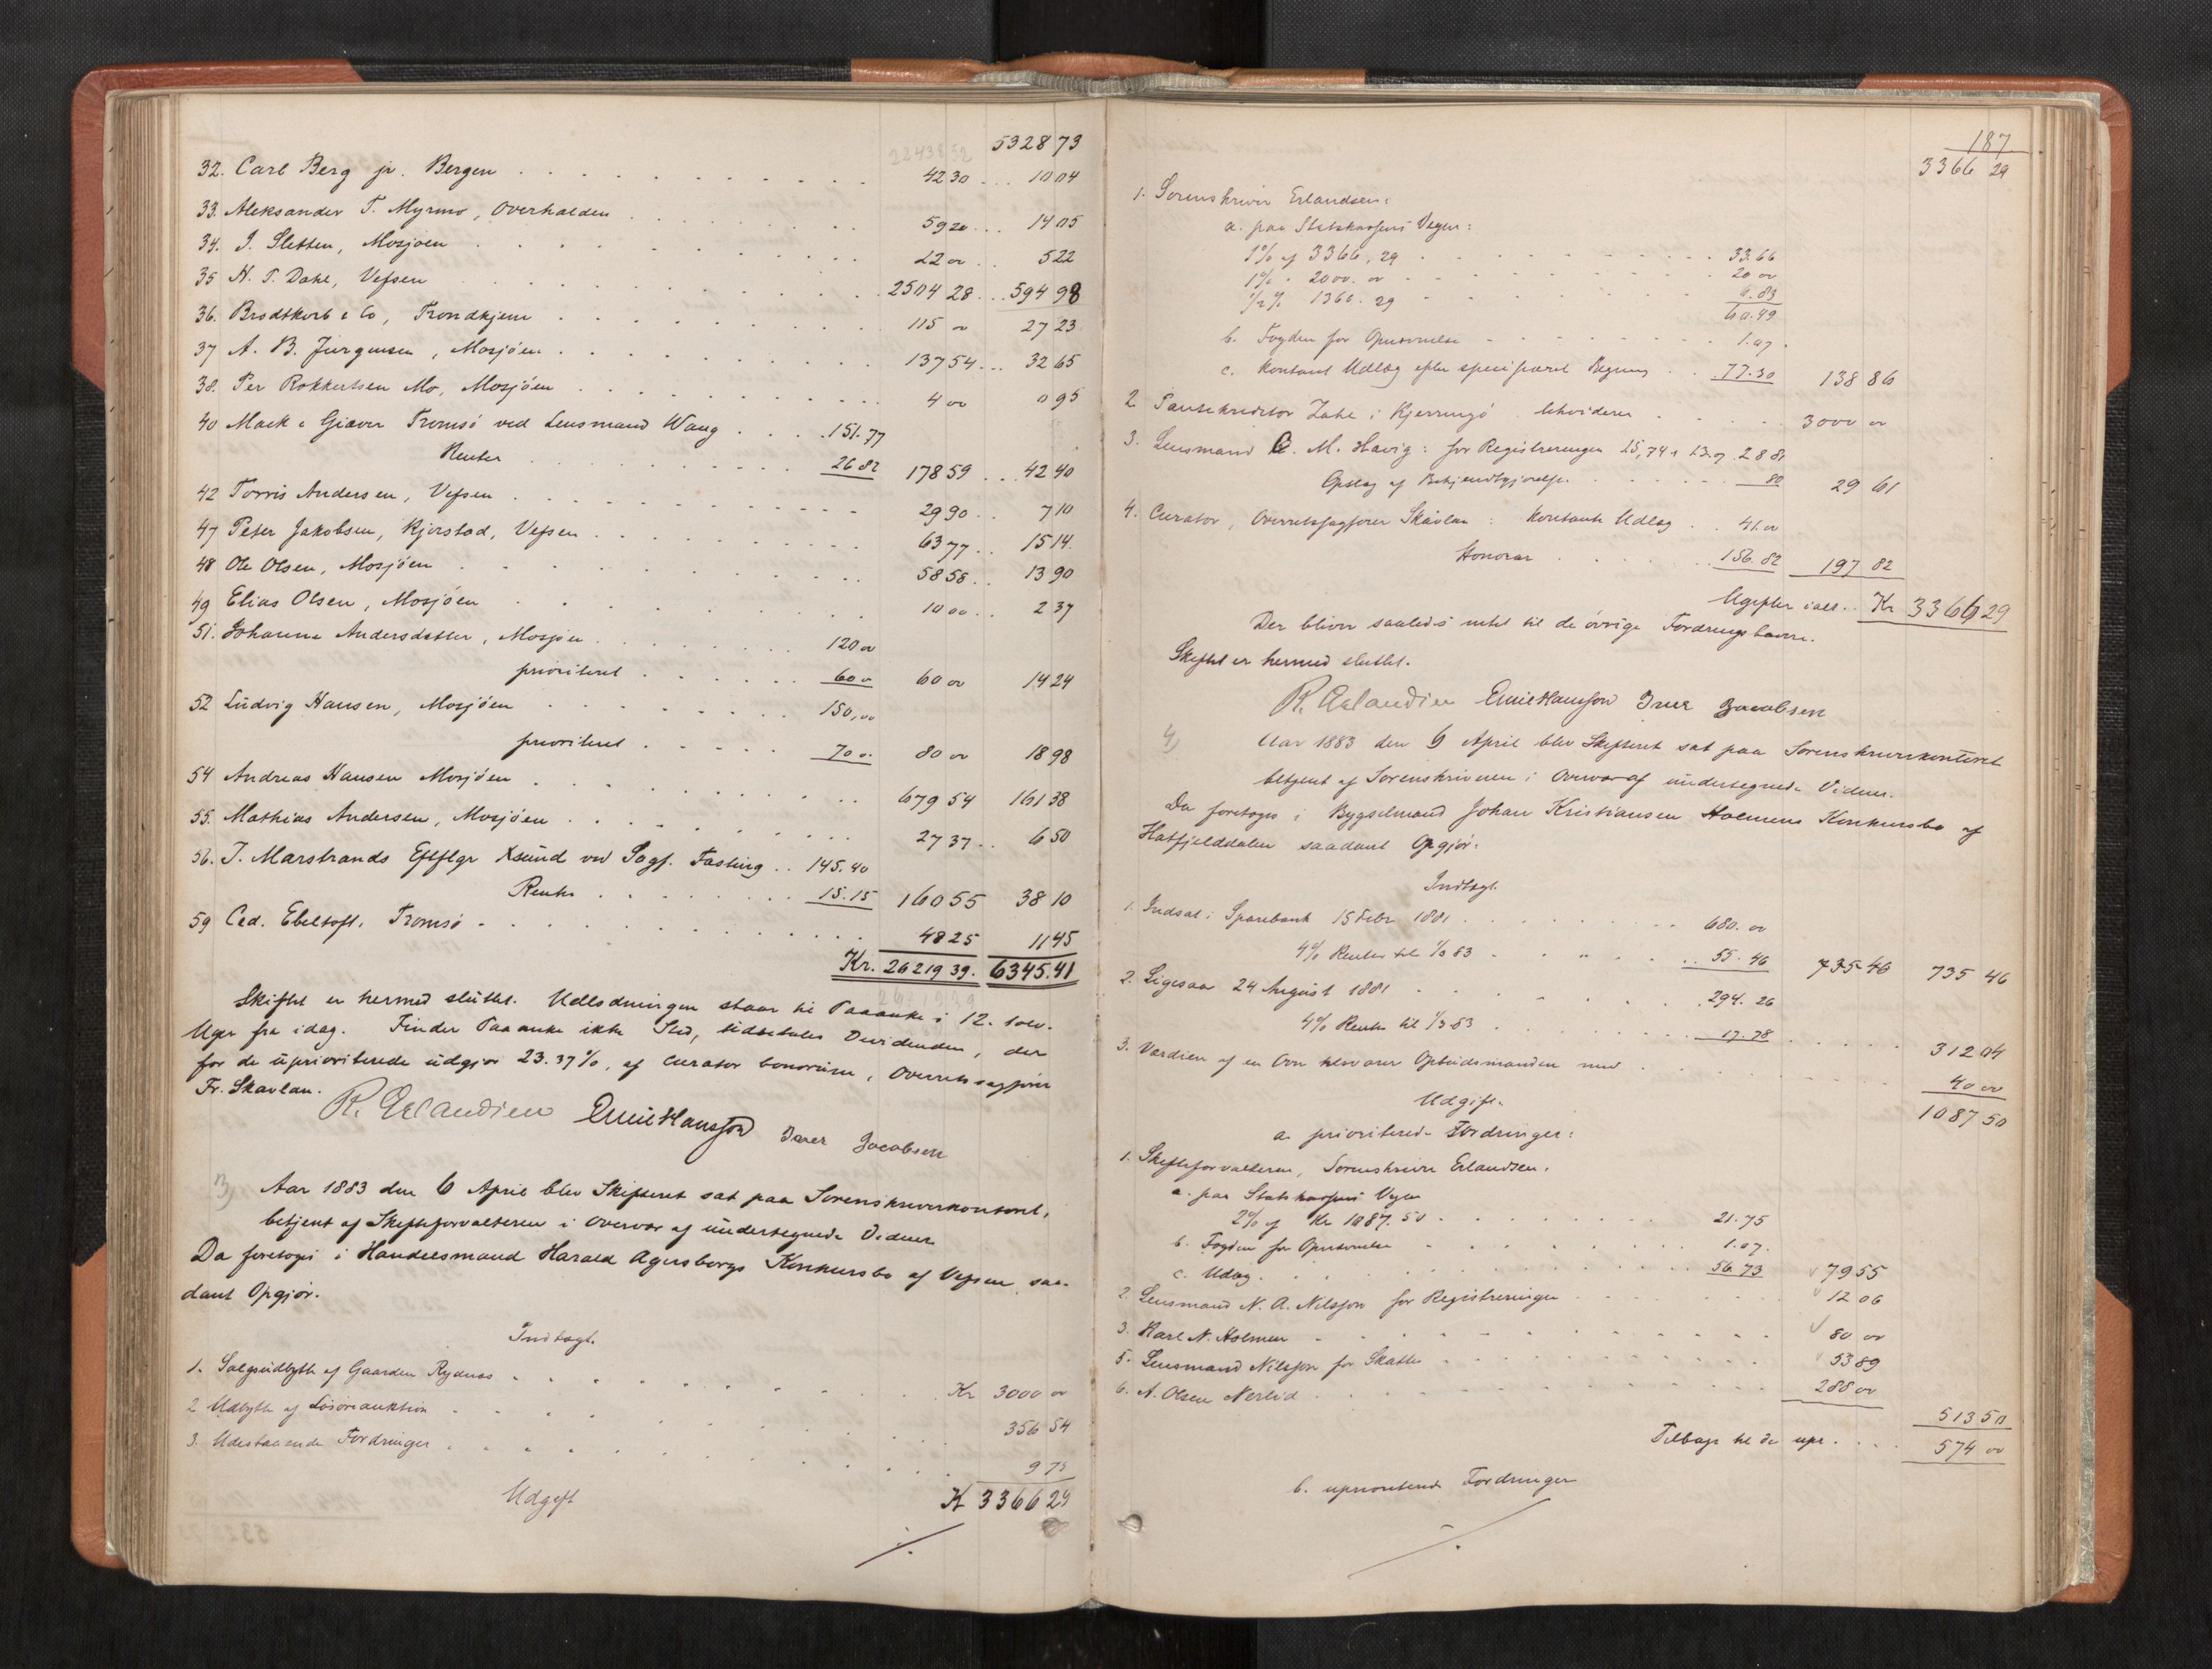 22438 52 5328 73
32. Carl Berg jr. Bergen . . . 42 30 . . . 10 04
33. Aleksander T. Myrmo, Overhalden . . . 59 20 . . . 14 05
34. J. Sletten, Mosjøen . . . 22 00 . . 5 22
35 H. P. Dahl, Vefsen . . . 2504 28 . . . 594 98
36. Brodtkorb & Co, Trondhjem . . . 115 00 27 23
37 A. B. Jürgensen, Mosjöen . . . 137 54 . . . 32 65
38. Per Rokkertsen Mo, Mosjöen . . . 4 00 0 95
40 Mack & Giæver Tromsö ved Lensmand Waag . . . 151.77
Renter . . . 26 82 178 59 . . . 42 40
42 Torris Andersen, Vefsen . . . 29 90 . . 7 10
47 Peter Jakobsen, Kjørstad, Vefsen . . . 63 77 . . 15 14.
48 Ole Olsen, Mosjöen . . . 58 58 . . 13 90
49 Elias Olsen, Mosjöen . . . 10 00 . . 2 37
51. Johanna Andersdatter, Mosjöen . . . 120 00
prioriteret . . . 60 00 60 00 14 24
52 Ludvig Hansen, Mosjöen . . . 150,00
prioriteret . . . 70 00 80 00 18 98
54 Andreas Hansen Mosjöen . . . 679 54 161 38
55. Mathias Andersen, Mosjöen . . . 27 37 . . 6 50
56. J. Marstrands Eftflgr Xsund ved Sagf. Fasting . . 145.40
Renter . . . 15.15 160 55 38 10
59 Ced. Ebeltoft, Tromsö . . . 48 25 11 45
Kr. 26219 39. 6345.41
Skiftet er hermed sluttet. Udlodningen staar til Paaanke i 12 - tolv -
Uger fra idag. Finder Paaanke ikke Sted, udbetales Dividenden, der
for de uprioriterede udgjør 23.37%, af curator bonorum, Overretssagfører
Fr. Skavlan.
R. Erlandsen Emil Hansson Iver Jacobsen
3) Aar 1883 den 6 April blev Skifteret sat paa Sorenskriverkontoret,
betjent af Skifteforvalteren i Overvær af undertegnede Vidner
Da foretoges i Handelsmand Harald Agersborgs Konkursbo af Vefsen saa-
dant Opgjør.
Indtægt.
1. Salgsudbytte af Gaarden Rydnes . . . Kr 3000 00
2 Udbytte af Løsøreauktion . . . 356 54
3. Udestaaende Fordringer . . . 9 75
K 3366 29
Udgift
./.
187
3366 29
1. Sorenskriver Erlandsen:
a. paa Statskassens Vegne:
1% af 3366,29 . . . 33.66
1% - 2000.00 . . . 20 00
1/2 % 1366.29 . . . 6.83
60.49
b. Fogden for Opnævnelse . . . 1.07.
c. Kontant Udlæg efter specificeret Regning . . 77.30 138 86
2 Pantekreditor Zahl i Kjerringö likviderer . . . 3000 00
3. Lensmand C. M. Havig: for Registreringen 25,74 & 3.07 28 81
Opslag af Bekjendtgjørelse . . . 80 29 61
4. Curator, Overretssagfører Skavlan: Kontante Udlæg . . 41.00
Honorar . . . 156.82 197 82
Udgifter ialt . . Kr 3366 29
Der bliver saaledes intet til de övrige Fordringshavere.
Skiftet er hermed sluttet.
R. Erlandsen Emil Hansson Iver Jacobsen
4) Aar 1883 den 6 April blev Skifteret sat paa Sorenskriverkontoret
betjent af Sorenskriveren i Overvær af undertegnede Vidner.
Da foretoges i Bygselmand Johan Kristiansen Holmens Konkursbo af
Hatfjelddalen saadant Opgjør:
Indtægt.
1. Indsat i Sparebank 15 Febr 1881 . . . 680.00
4% Renter til 1/3 83 . . . 55.46 735 46 735 46
2. Ligesaa 24 August 1881 . . . 294.26
4% Renter til 1/3 83 . . . 17.78 . . . 312 04
3. Værdien af en Ovn tilsvarer Opbudsmanden med . . . 40 00
1087 50
Udgift.
a. prioriterede Fordringer:
1. Skifteforvalteren, Sorenskriver Erlandsen.
a. paa Statskassens Vegne
2% af Kr 1087.50 . . . 21.75
b. Fogden for Opnævnelse . . . 1.07.
c. Udlæg . . . 56 73 79 55
2. Lensmand N. A. Nilsson for Registreringen . . . 12 06
3. Karl N. Holmen . . . 80 00
5. Lensmand Nilsson for Skatter . . . 53 89
6. A. Olsen Nerlid . . . 288 00
513 50
Tilbage til de upr. . . . 574 00
b. uprioriterede Fordringer
./.